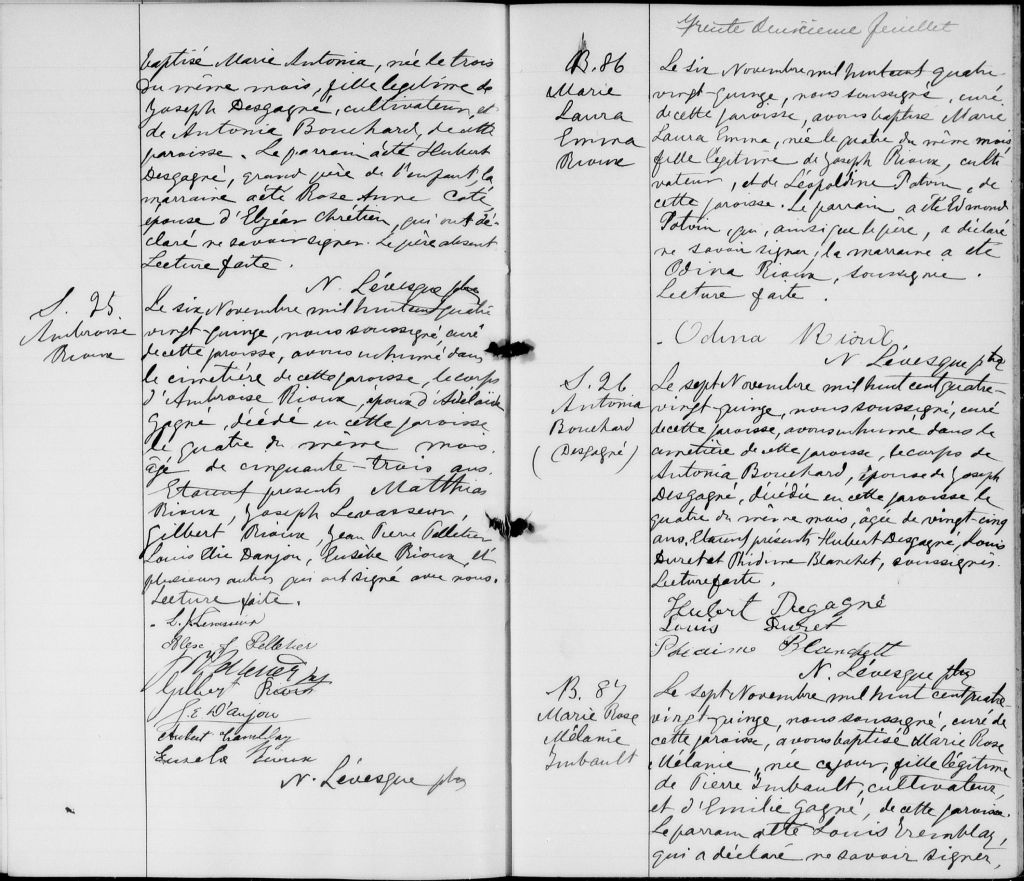 baptisé Marie Antonia, née le trois
du même mois, fille légitime de
Joseph Desgagné, cultivateur, et
de Antonia Bouchard, de cette
paroisse. Le parrain a été Hubert
Desgagné, grand père de l'enfant, la
marraine a été Rose Anne Coté,
épouse d'Elzéar Chrétien, qui ont dé-
claré ne savoir signer. Le père absent.
Lecture faite.
N. Lévesque ptre
S. 25
Ambroise
Rioux
Le six Novembre mil huit cent quatre
vingt-quinze, nous soussigné, curé
de cette paroisse, avons inhumé dans
le cimetière de cette paroisse, le corps
d'Ambroise Rioux, époux d'Adélaide
Gagné, décédé en cette paroisse
le quatre du même mois,
âgé de cinquante-trois ans.
Etaient présents Matthias
Rioux, Joseph Levasseur,
Gilbert Rioux, Jean Pierre Pelletier
Louis Elie Danjou, Eusèbe Rioux, et
plusieurs autres qui ont signé avec nous.
Lecture faite.
L. J. Levasseur
J. Pelletier
Gilbert Rioux
J. E. D'anjou
Hubert Tremblay
Rioux
N. Lévesque ptre
Trente deuxième feuillet
B. 86
Marie
Laura
Emma
Rioux
Le six Novembre mil huit cent quatre-
vingt-quinze, nous soussigné, curé
de cette paroisse, avons baptisé Marie
Laura Emma, née le quatre du même mois
fille légitime de Joseph Rioux, culti
vateur, et de Léopoldine Potvin, de
cette paroisse. Le parrain a été Edmond
Potvin, qui, ainsi que le père, a déclaré
ne savoir signer, la marraine a été
Odina Rioux, soussignée.
Lecture faite.
Odina Rioux
N. Lévesque ptre
S. 26
Antonia
Bouchard
(Desgagné)
Le sept Novembre mil huit cent quatre-
vingt-quinze, nous soussigné, curé
de cette paroisse, avons inhumé dans le
cimetière de cette paroisse, le corps de
Antonia Bouchard, épouse de Joseph
Desgagné, décédée en cette paroisse le
quatre du même mois, âgée de vingt-cinq
ans. Etaient présents Hubert Desgagné, Louis
Duret et Phidime Blanchet, soussignés.
Lecture faite.
Hubert Degagné
Louis Duret
Phidime Blanchett
N. Lévesque ptre
B. 87
Marie Rose
Mélanie
Imbault
Le sept Novembre mil huit cent quatre-
vingt-quinze, nous soussigné, curé de
cette paroisse, avons baptisé Marie Rose
Mélanie, née ce jour, fille légitime
de Pierre Imbault, cultivateur,
et d'Emilie Gagné, de cette paroisse.
Le parrain a été Louis Tremblay,
qui a déclaré ne savoir signer,